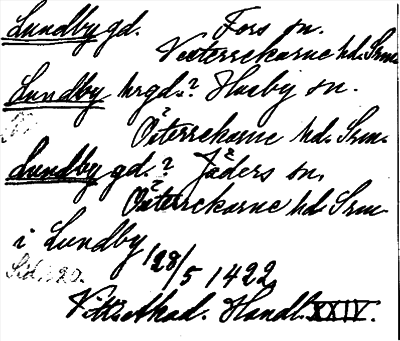 Lundby gd. Fors sn.
Västerrekarne hd. Srm.
Lundby hrgd.? Husby sn.
Österrekarne hd. Srm.
Lundby gd.? Jäders sn.
Österrekarne hd. Srm.
i Lundby 28/5 1422
Sid. 120.
Vitt. Akad. Handl. XXIV.